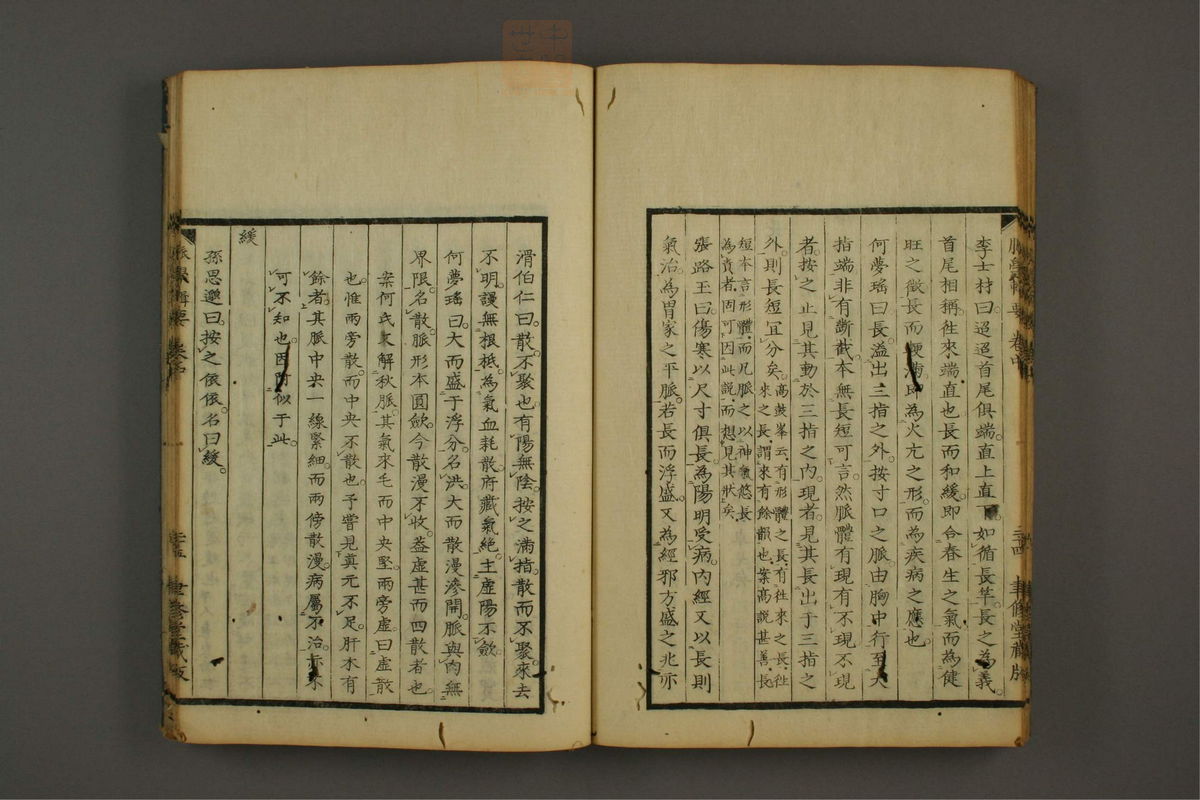 李士材曰。迢迢首尾俱端。直上直下。如循長竿。長之為義。
首尾相稱。往來端直也。長而和緩。即合春生之氣。而為健
旺之徵。長而硬滿。即為火亢之形。而為疾病之應也。
何夢瑤曰。長溢出三指之外。按寸口之脈。由胸中行至大
指端。非有斷截。本無長短可言。然脈體有現有不現。不現
者。按之止見其動於三指之內。現者。見其長出于三指之
外。則長短宜分矣。高鼓峯云。有形體之長。有往來之長。往
來之長。謂來有餘韻也。案高說甚善。長
短本言形體。而凡脈之以神氣悠長
為貴者。固可因此說。而想見其狀矣。
張路玉曰。傷寒以尺寸俱長。為陽明受病。內經又以長則
氣治。為胃家之平脈。若長而浮盛。又為經邪方盛之兆。亦
脈學輯要 卷中 三十四 聿修堂藏版
滑伯仁曰。散。不聚也。有陽無陰。按之滿指。散而不聚。來去
不明。謾無根柢。為氣血耗散。府藏氣絕。主虛陽不斂。
何夢瑤曰。大而盛于浮分。名洪。大而散漫滲開。脈與肉無
界限。名散。脈形本圓斂。今散漫不收。蓋虛甚而四散者也。
案何氏又解秋脈。其氣來毛而中央堅。兩旁虛。曰虛散
也。惟兩旁散而中央不散也。予嘗見真元不足。肝木有
餘者。其脈中央一線緊細。而兩傍散漫。病屬不治。亦不
可不知也。因附似于此。
緩
孫思邈曰。按之依依。名曰緩。
脈學輯要 卷中 三十五 聿修堂藏版